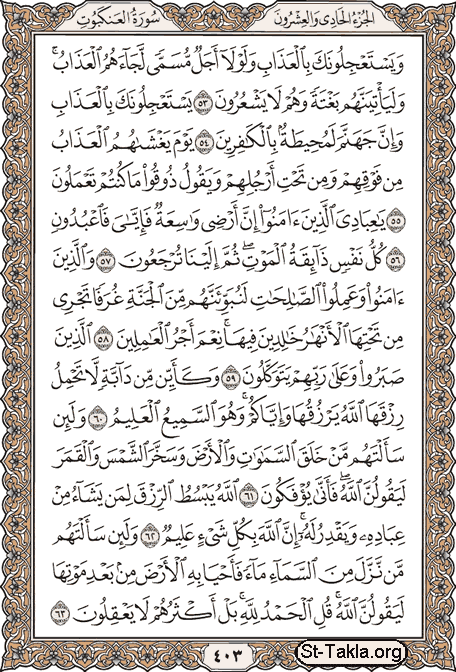 الجزء الحادى والعشرون
سورة العنكبوت
وَيَسْتَعْجِلُونَكَ بِٱلْعَذَابِ وَلَوْلَآ أَجَلٌ مُّسَمًّى لَّجَآءَهُمُ ٱلْعَذَابُ ۚ
وَلَيَأْتِيَنَّهُم بَغْتَةً وَهُمْ لَا يَشْعُرُونَ ٥٣ يَسْتَعْجِلُونَكَ بِٱلْعَذَابِ
وَإِنَّ جَهَنَّمَ لَمُحِيطَةٌۢ بِٱلْكَٰفِرِينَ ٥٤ يَوْمَ يَغْشَىٰهُمُ ٱلْعَذَابُ
مِن فَوْقِهِمْ وَمِن تَحْتِ أَرْجُلِهِمْ وَيَقُولُ ذُوقُوا۟ مَا كُنتُمْ تَعْمَلُونَ
٥٥ يَٰعِبَادِىَ ٱلَّذِينَ ءَامَنُوٓا۟ إِنَّ أَرْضِى وَٰسِعَةٌ فَإِيَّٰىَ فَٱعْبُدُونِ
٥٦ كُلُّ نَفْسٍ ذَآئِقَةُ ٱلْمَوْتِ ۖ ثُمَّ إِلَيْنَا تُرْجَعُونَ ٥٧ وَٱلَّذِينَ
ءَامَنُوا۟ وَعَمِلُوا۟ ٱلصَّٰلِحَٰتِ لَنُبَوِّئَنَّهُم مِّنَ ٱلْجَنَّةِ غُرَفًا تَجْرِى
مِن تَحْتِهَا ٱلْأَنْهَٰرُ خَٰلِدِينَ فِيهَا ۚ نِعْمَ أَجْرُ ٱلْعَٰمِلِينَ ٥٨ ٱلَّذِينَ
صَبَرُوا۟ وَعَلَىٰ رَبِّهِمْ يَتَوَكَّلُونَ ٥٩ وَكَأَيِّن مِّن دَآبَّةٍ لَّا تَحْمِلُ
رِزْقَهَا ٱللَّهُ يَرْزُقُهَا وَإِيَّاكُمْ ۚ وَهُوَ ٱلسَّمِيعُ ٱلْعَلِيمُ ٦٠ وَلَئِن
سَأَلْتَهُم مَّنْ خَلَقَ ٱلسَّمَٰوَٰتِ وَٱلْأَرْضَ وَسَخَّرَ ٱلشَّمْسَ وَٱلْقَمَرَ
لَيَقُولُنَّ ٱللَّهُ ۖ فَأَنَّىٰ يُؤْفَكُونَ ٦١ ٱللَّهُ يَبْسُطُ ٱلرِّزْقَ لِمَن يَشَآءُ مِنْ
عِبَادِهِۦ وَيَقْدِرُ لَهُۥٓ ۚ إِنَّ ٱللَّهَ بِكُلِّ شَىْءٍ عَلِيمٌ ٦٢ وَلَئِن سَأَلْتَهُم
مَّن نَّزَّلَ مِنَ ٱلسَّمَآءِ مَآءً فَأَحْيَا بِهِ ٱلْأَرْضَ مِنۢ بَعْدِ مَوْتِهَا
لَيَقُولُنَّ ٱللَّهُ ۚ قُلِ ٱلْحَمْدُ لِلَّهِ ۚ بَلْ أَكْثَرُهُمْ لَا يَعْقِلُونَ ٦٣
٤٠٣
St-Takla.org